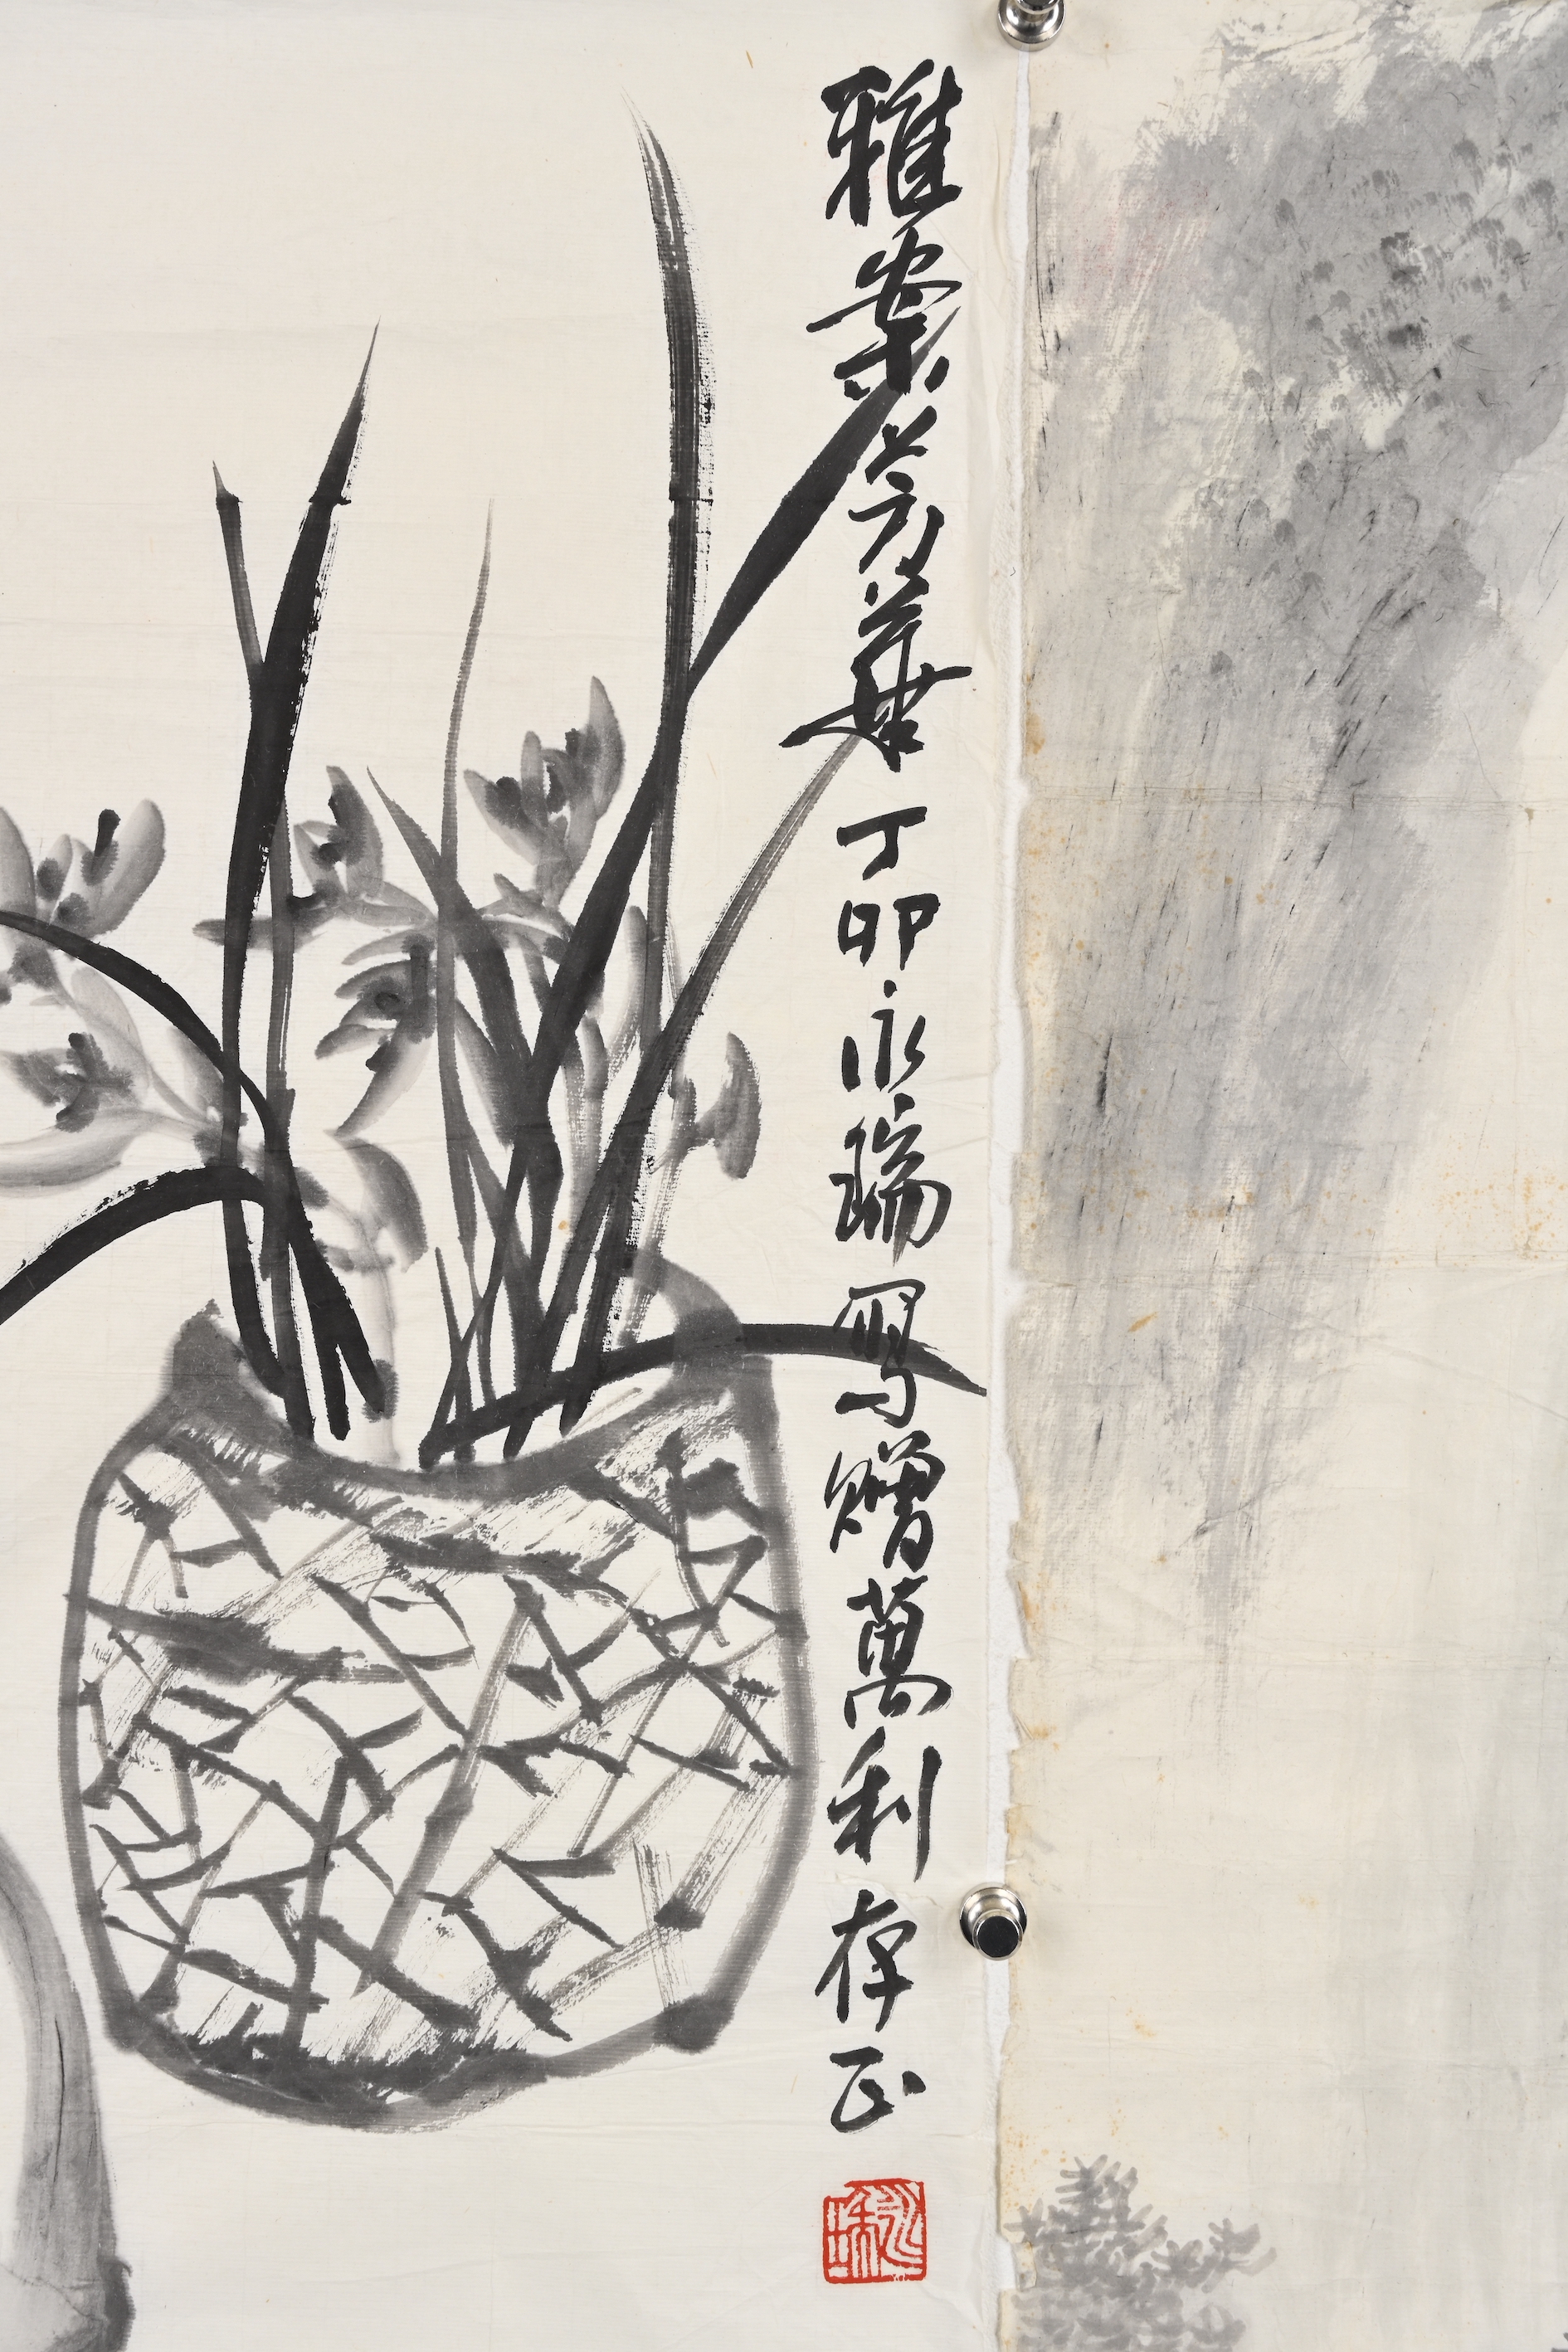 雅案芳華丁卯永瑞寫贈萬利存正